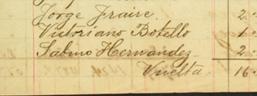 Jorge Fraire 2
Victoriano Botello 1
Sabino Hernandez 2
Vuelta 16